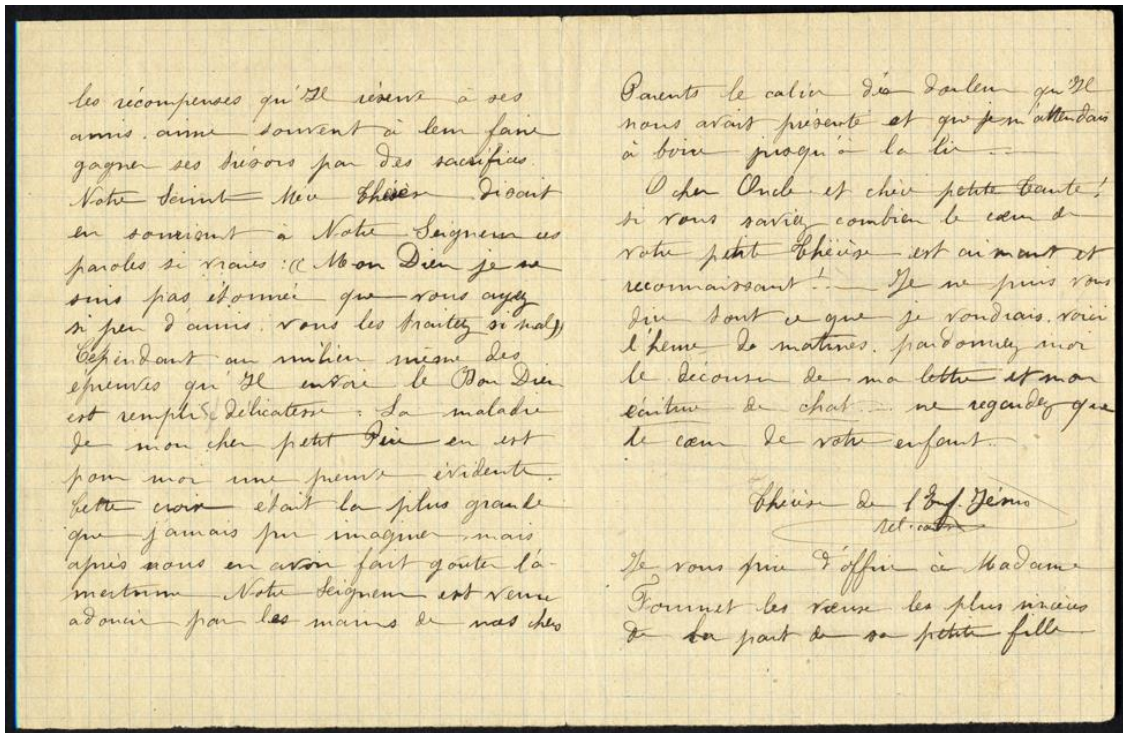 les récompenses qu'Il réserve à ses
amis, aime souvent à leur faire
gagner ses trésors par des sacrifices.
Notre Sainte Mère Thérèse disait
en souriant à Notre Seigneur ces
paroles si vraies : « Mon Dieu je ne
suis pas étonnée que vous ayez
si peu d'amis, vous les traitez si mal »
Cependant au milieu même des
épreuves qu'Il envoie le Bon Dieu
est rempli de délicatesse. La maladie
de mon cher petit Père en est
pour moi une preuve évidente.
Cette croix était la plus grande
que j'amais pu imaginer, mais
après nous en avoir fait goûter l'a-
mertume Notre Seigneur est venu
adoucir par les mains de nos chers
Parents le calice de douleur qu'Il
nous avait présenté et que je m'attendais
à boire jusqu'à la lie ...
O cher Oncle et chère petite Tante !
si vous saviez combien le cœur de
votre petite Thérèse est aimant et
reconnaissant !... Je ne puis vous
dire tout ce que je voudrais, voici
l'heure de matines, pardonnez moi
le décousu de ma lettre et mon
écriture de chat... ne regardez que
le cœur de votre enfant...
Thérèse de l'Enf. Jésus
rel. carm
Je vous prie d'offrir à Madame
Fournet les vœux les plus sincères
de la part de sa petite fille